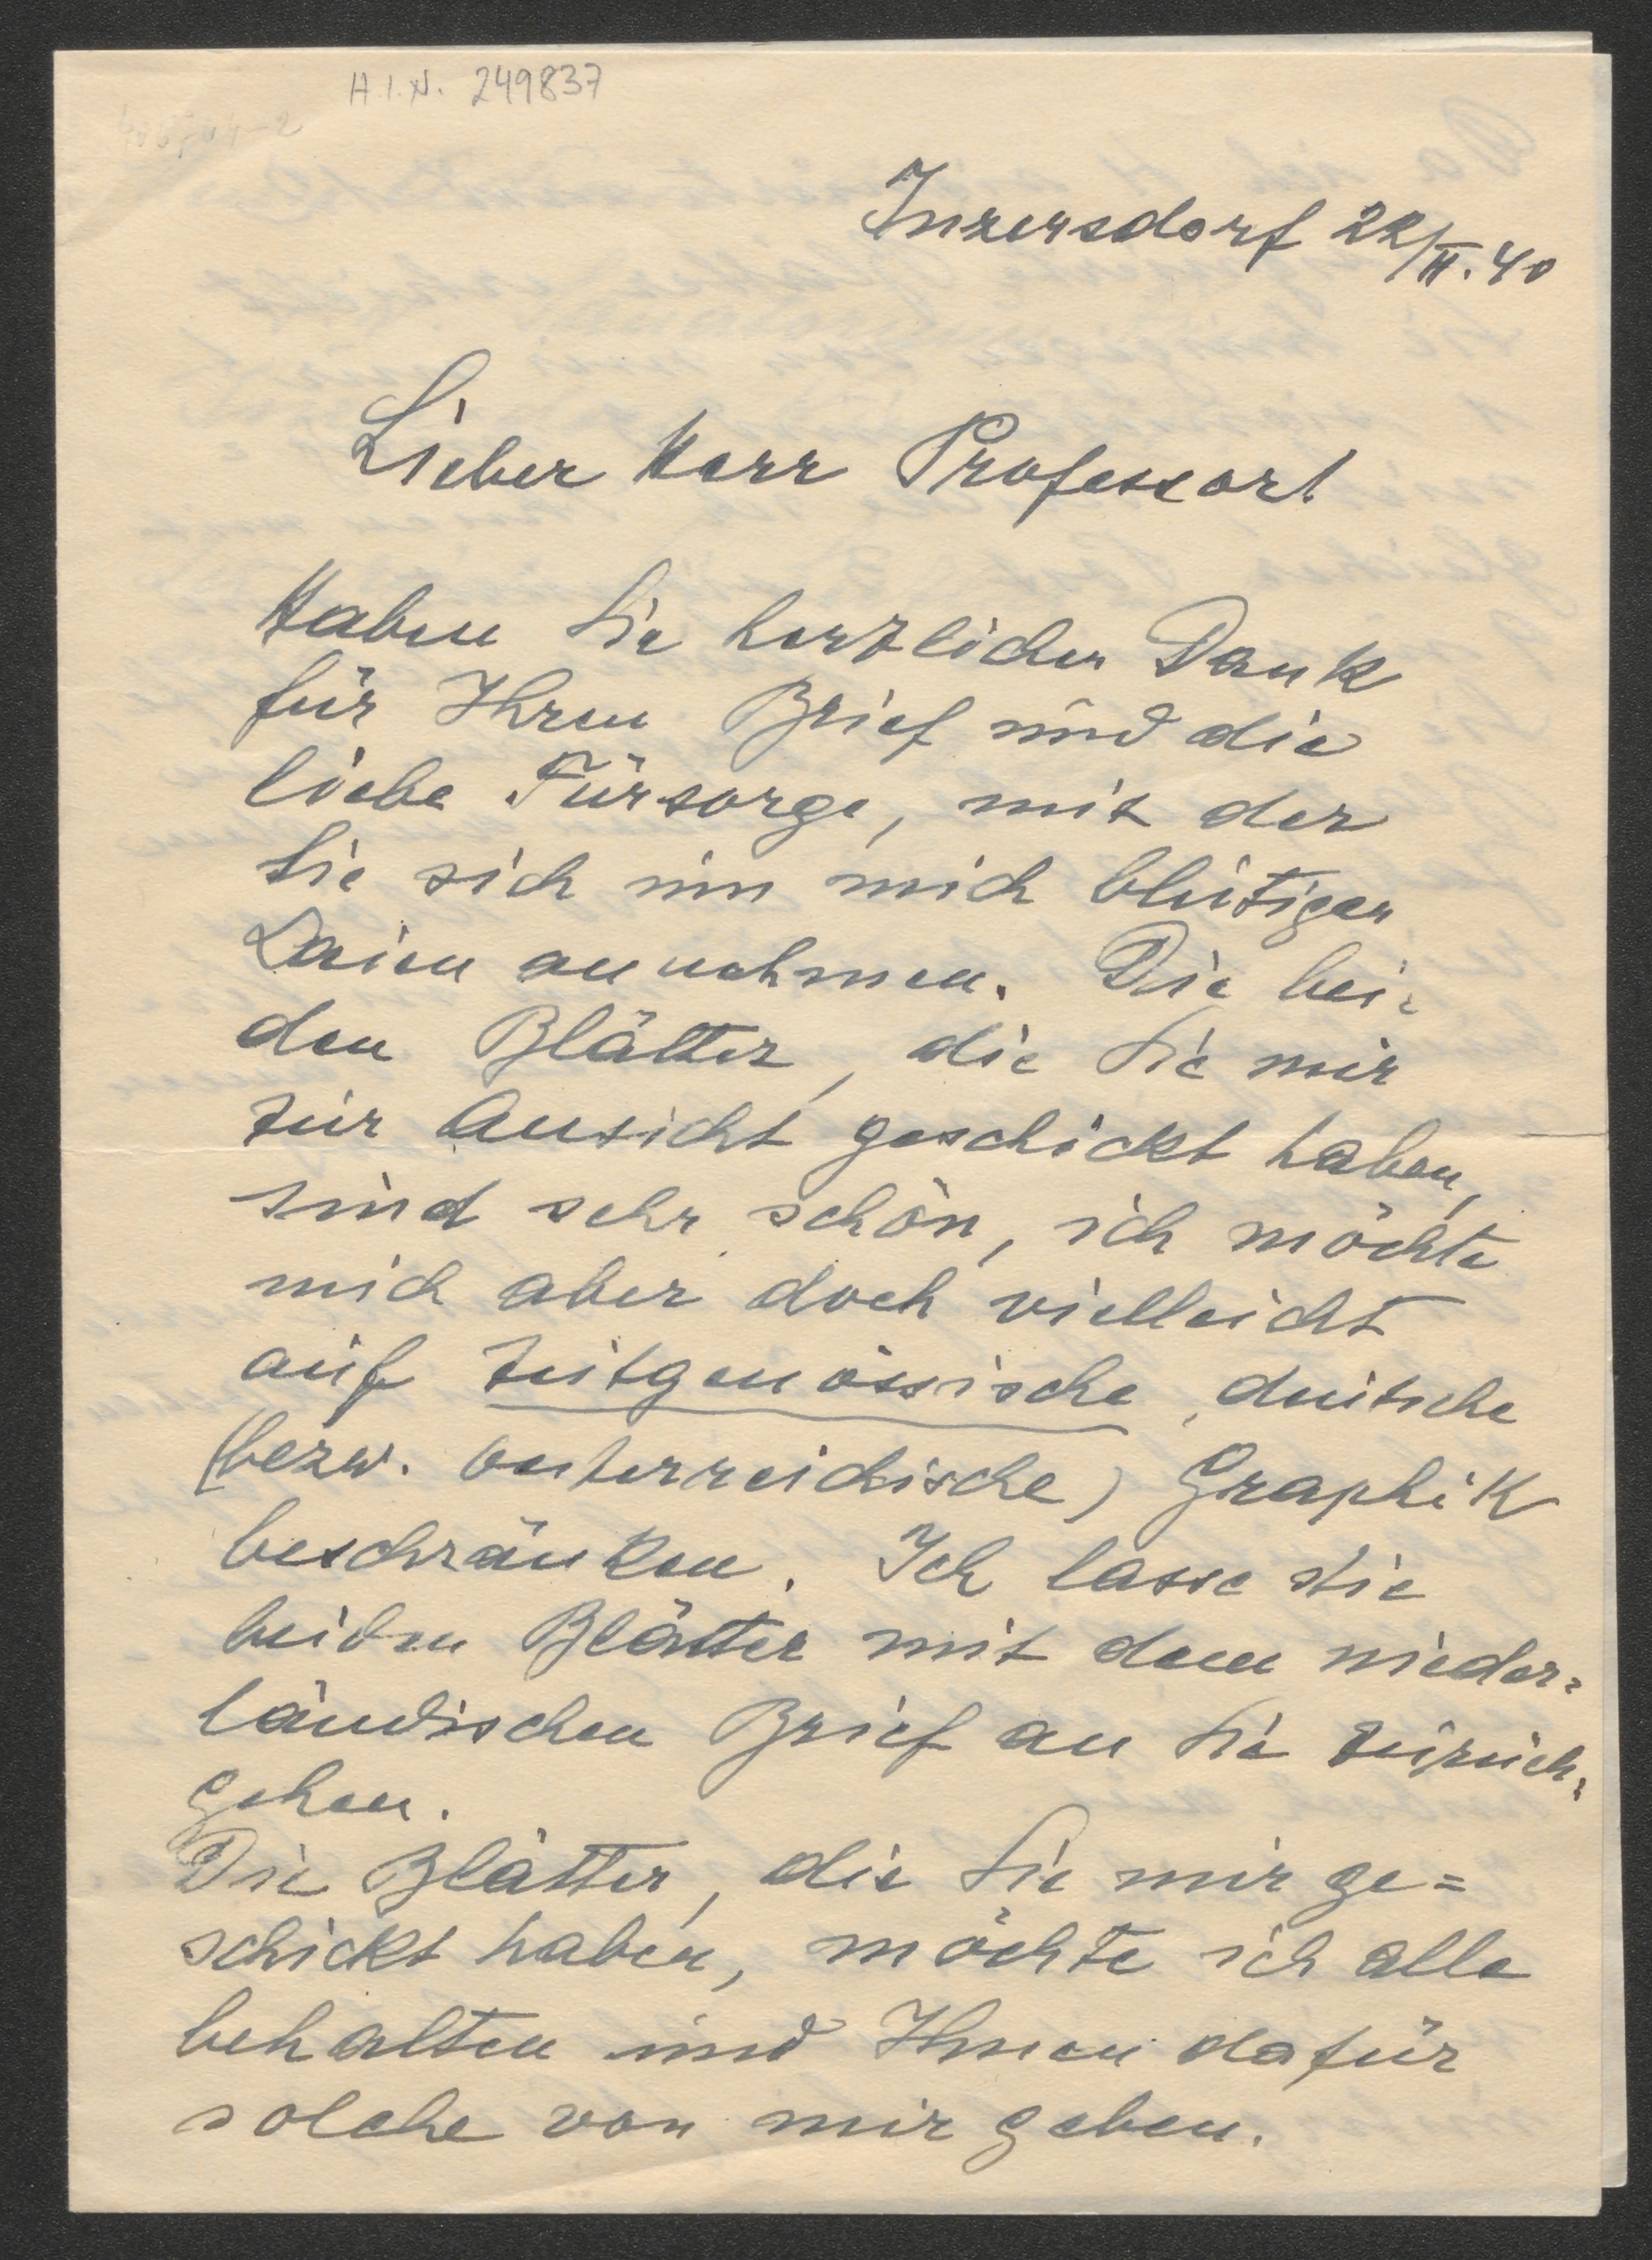 H.I.N. 249837
Inzersdorf 22/II.40
Lieber Herr Professor!
Haben Sie herzlichen Dank
für Ihren Brief und die
liebe Fürsorge, mit der
Sie sich um mich blutigen
Laien annehmen. Die bei=
den Blätter, die Sie mir
zur Ansicht geschickt haben,
sind sehr schön, ich möchte
mich aber doch vielleicht
auf zeitgenössische, deutsche
(bezw. oesterreichische) Graphik
beschränken. Ich lasse die
beiden Blätter mit dem nieder=
ländischen Brief an Sie zurück=
gehen.
Die Blätter, die Sie mir ge=
schickt haben, möchte ich alle
behalten und Ihnen dafür
solche von mir geben.